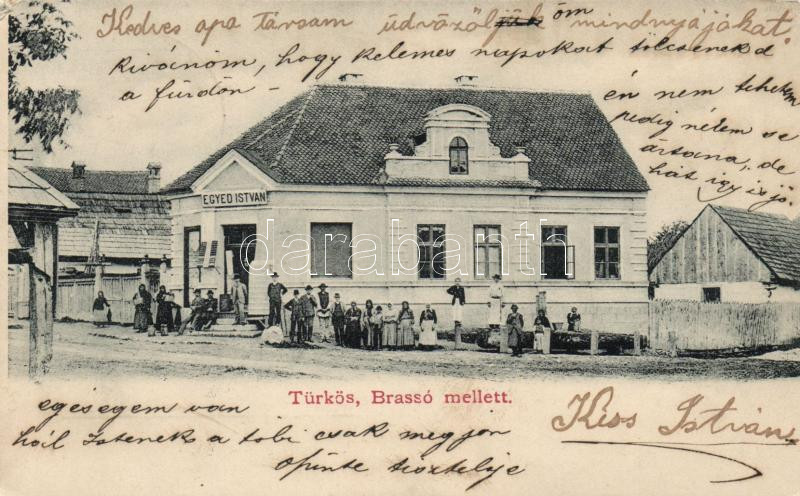 Kedves apa társam üdvözöljük öm mindnyájokat.
Kivánom, hogy kelemes napokat tölcsenek
a fürdön –
én nem tehetem
pedig nékem se
ártana, de
hát így is jó
EGYED ISTVÁN
darabanth
Türkös, Brassó mellett.
egésegem van
hál Istenek a tobi csak megjön
Kiss István
öpinte tisztelője